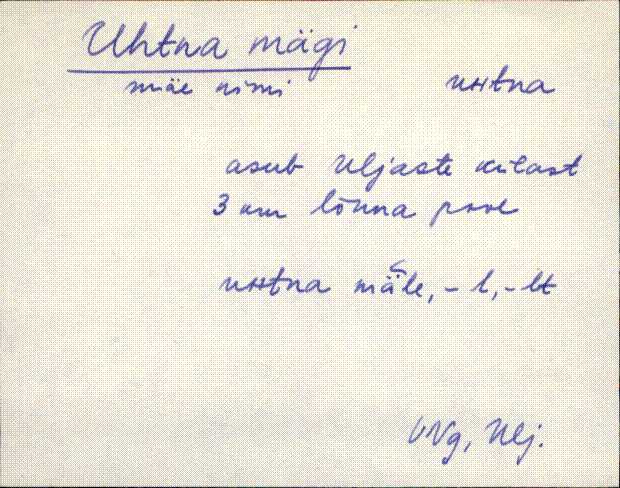 Uhtna mägi
mäe nimi uʜtna
asub Uljaste külast
3 km lõuna pool
uʜtna mäle, -l, -lt
VNg, Ulj.